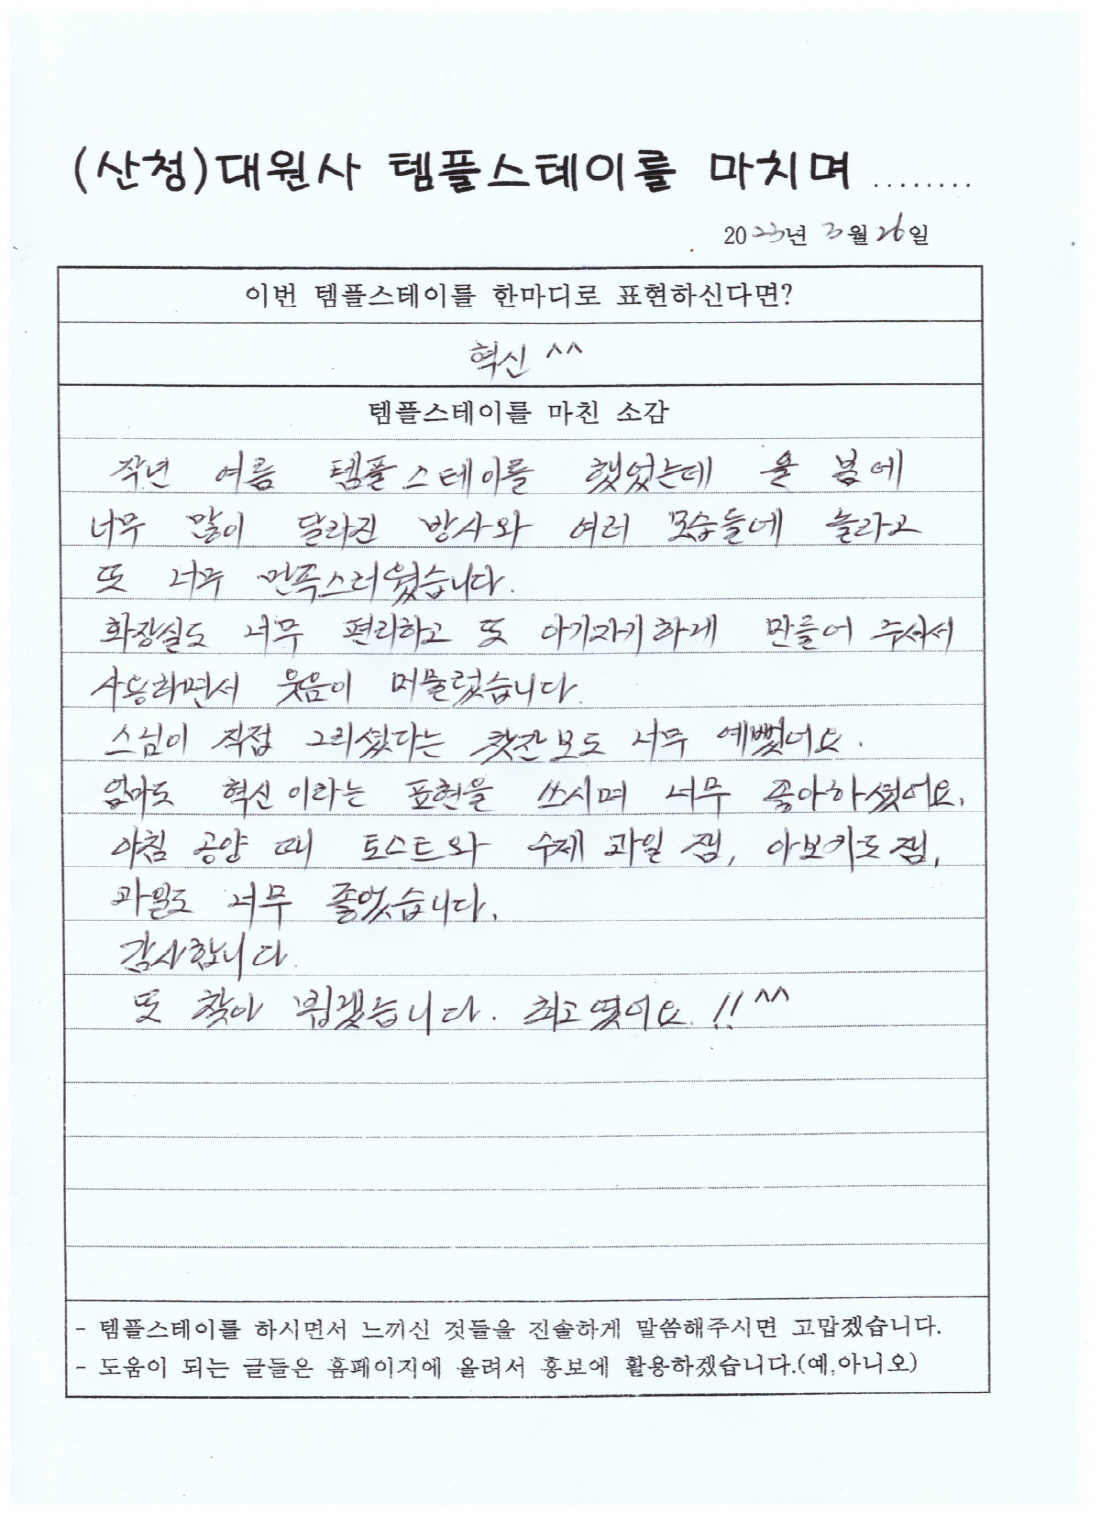 (산청)대원사 템플스테이를 마치며 ........
2023년 3월 26일
이번 템플스테이를 한마디로 표현하신다면?
혁신 ^^
템플스테이를 마친 소감
작년 여름 템플스테이를 했었는데 올 봄에
너무 많이 달라진 방사와 여러 모습들에 놀라고
또 너무 만족스러웠습니다.
화장실도 너무 편리하고 또 아기자기하게 만들어 주셔서
사용하면서 웃음이 머물렀습니다.
스님이 직접 그리셨다는 찻잔보도 너무 예뻤어요.
엄마도 혁신이라는 표현을 쓰시며 너무 좋아하셨어요.
아침 공양 때 토스트와 수제 과일 잼, 아보카도 잼,
과일도 너무 좋았습니다.
감사합니다.
또 찾아 뵙겠습니다. 최고였어요.!! ^^
- 템플스테이를 하시면서 느끼신 것들을 진솔하게 말씀해주시면 고맙겠습니다.
- 도움이 되는 글들은 홈페이지에 올려서 홍보에 활용하겠습니다.(예,아니오)